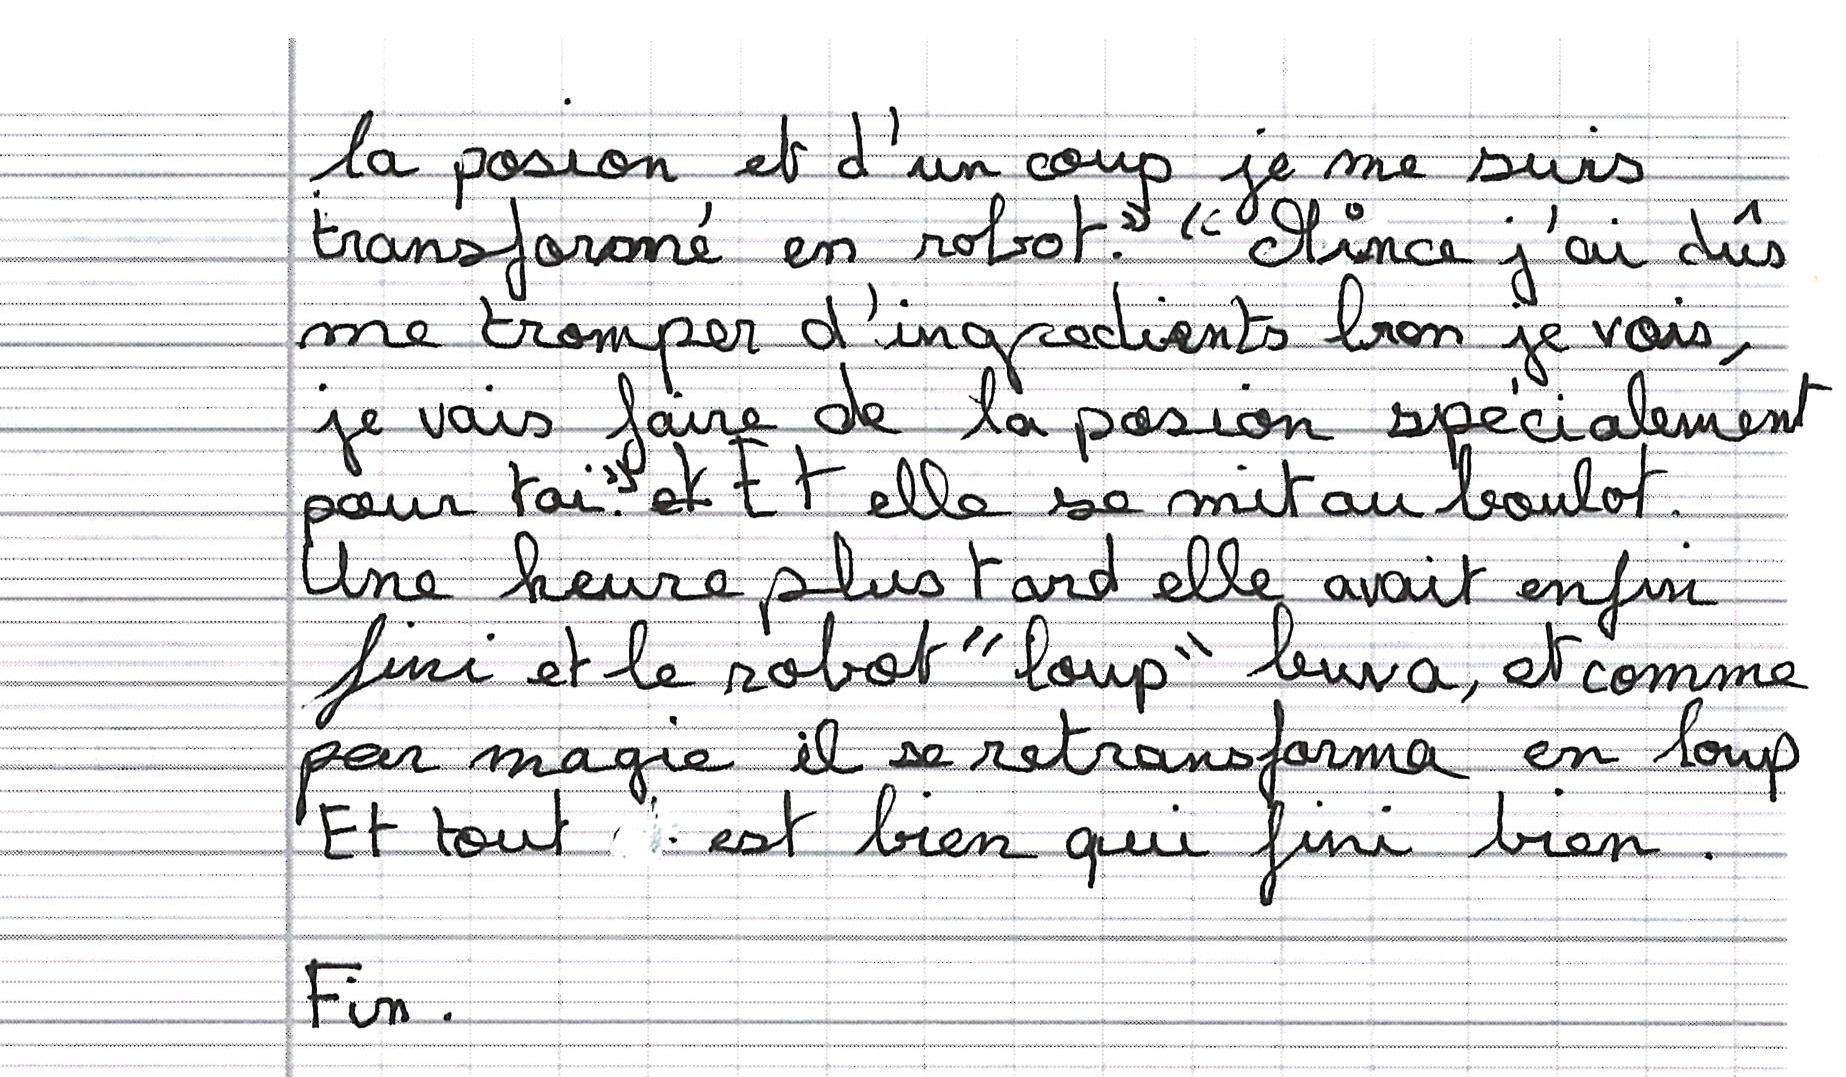 la posion et d'un coup je me suis
transformé en robot." "Mince j'ai dûs
me tromper d'ingredients bon je vais,
je vais faire de la posion spécialement
pour toi." et Et elle se mit au boulot.
Une heure plus tard elle avait enfin
fini et le robot "loup" buva, et comme
par magie il se retransforma en loup
Et tout est bien qui fini bien.
Fin.